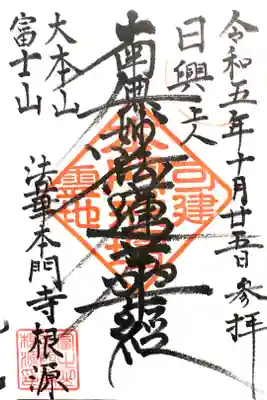 令和五年十月廿五日参拝
日興上人
南無妙法蓮華経
大本山
富士山
法華本門寺根源